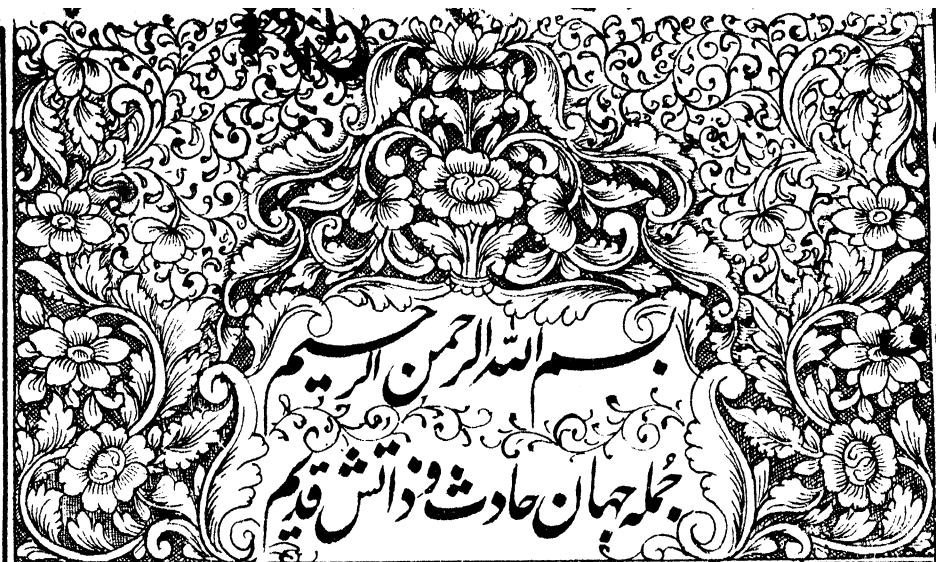 بسم الله الرحمن الرحیم
جمله جهان حادث و ذاتش قدیم